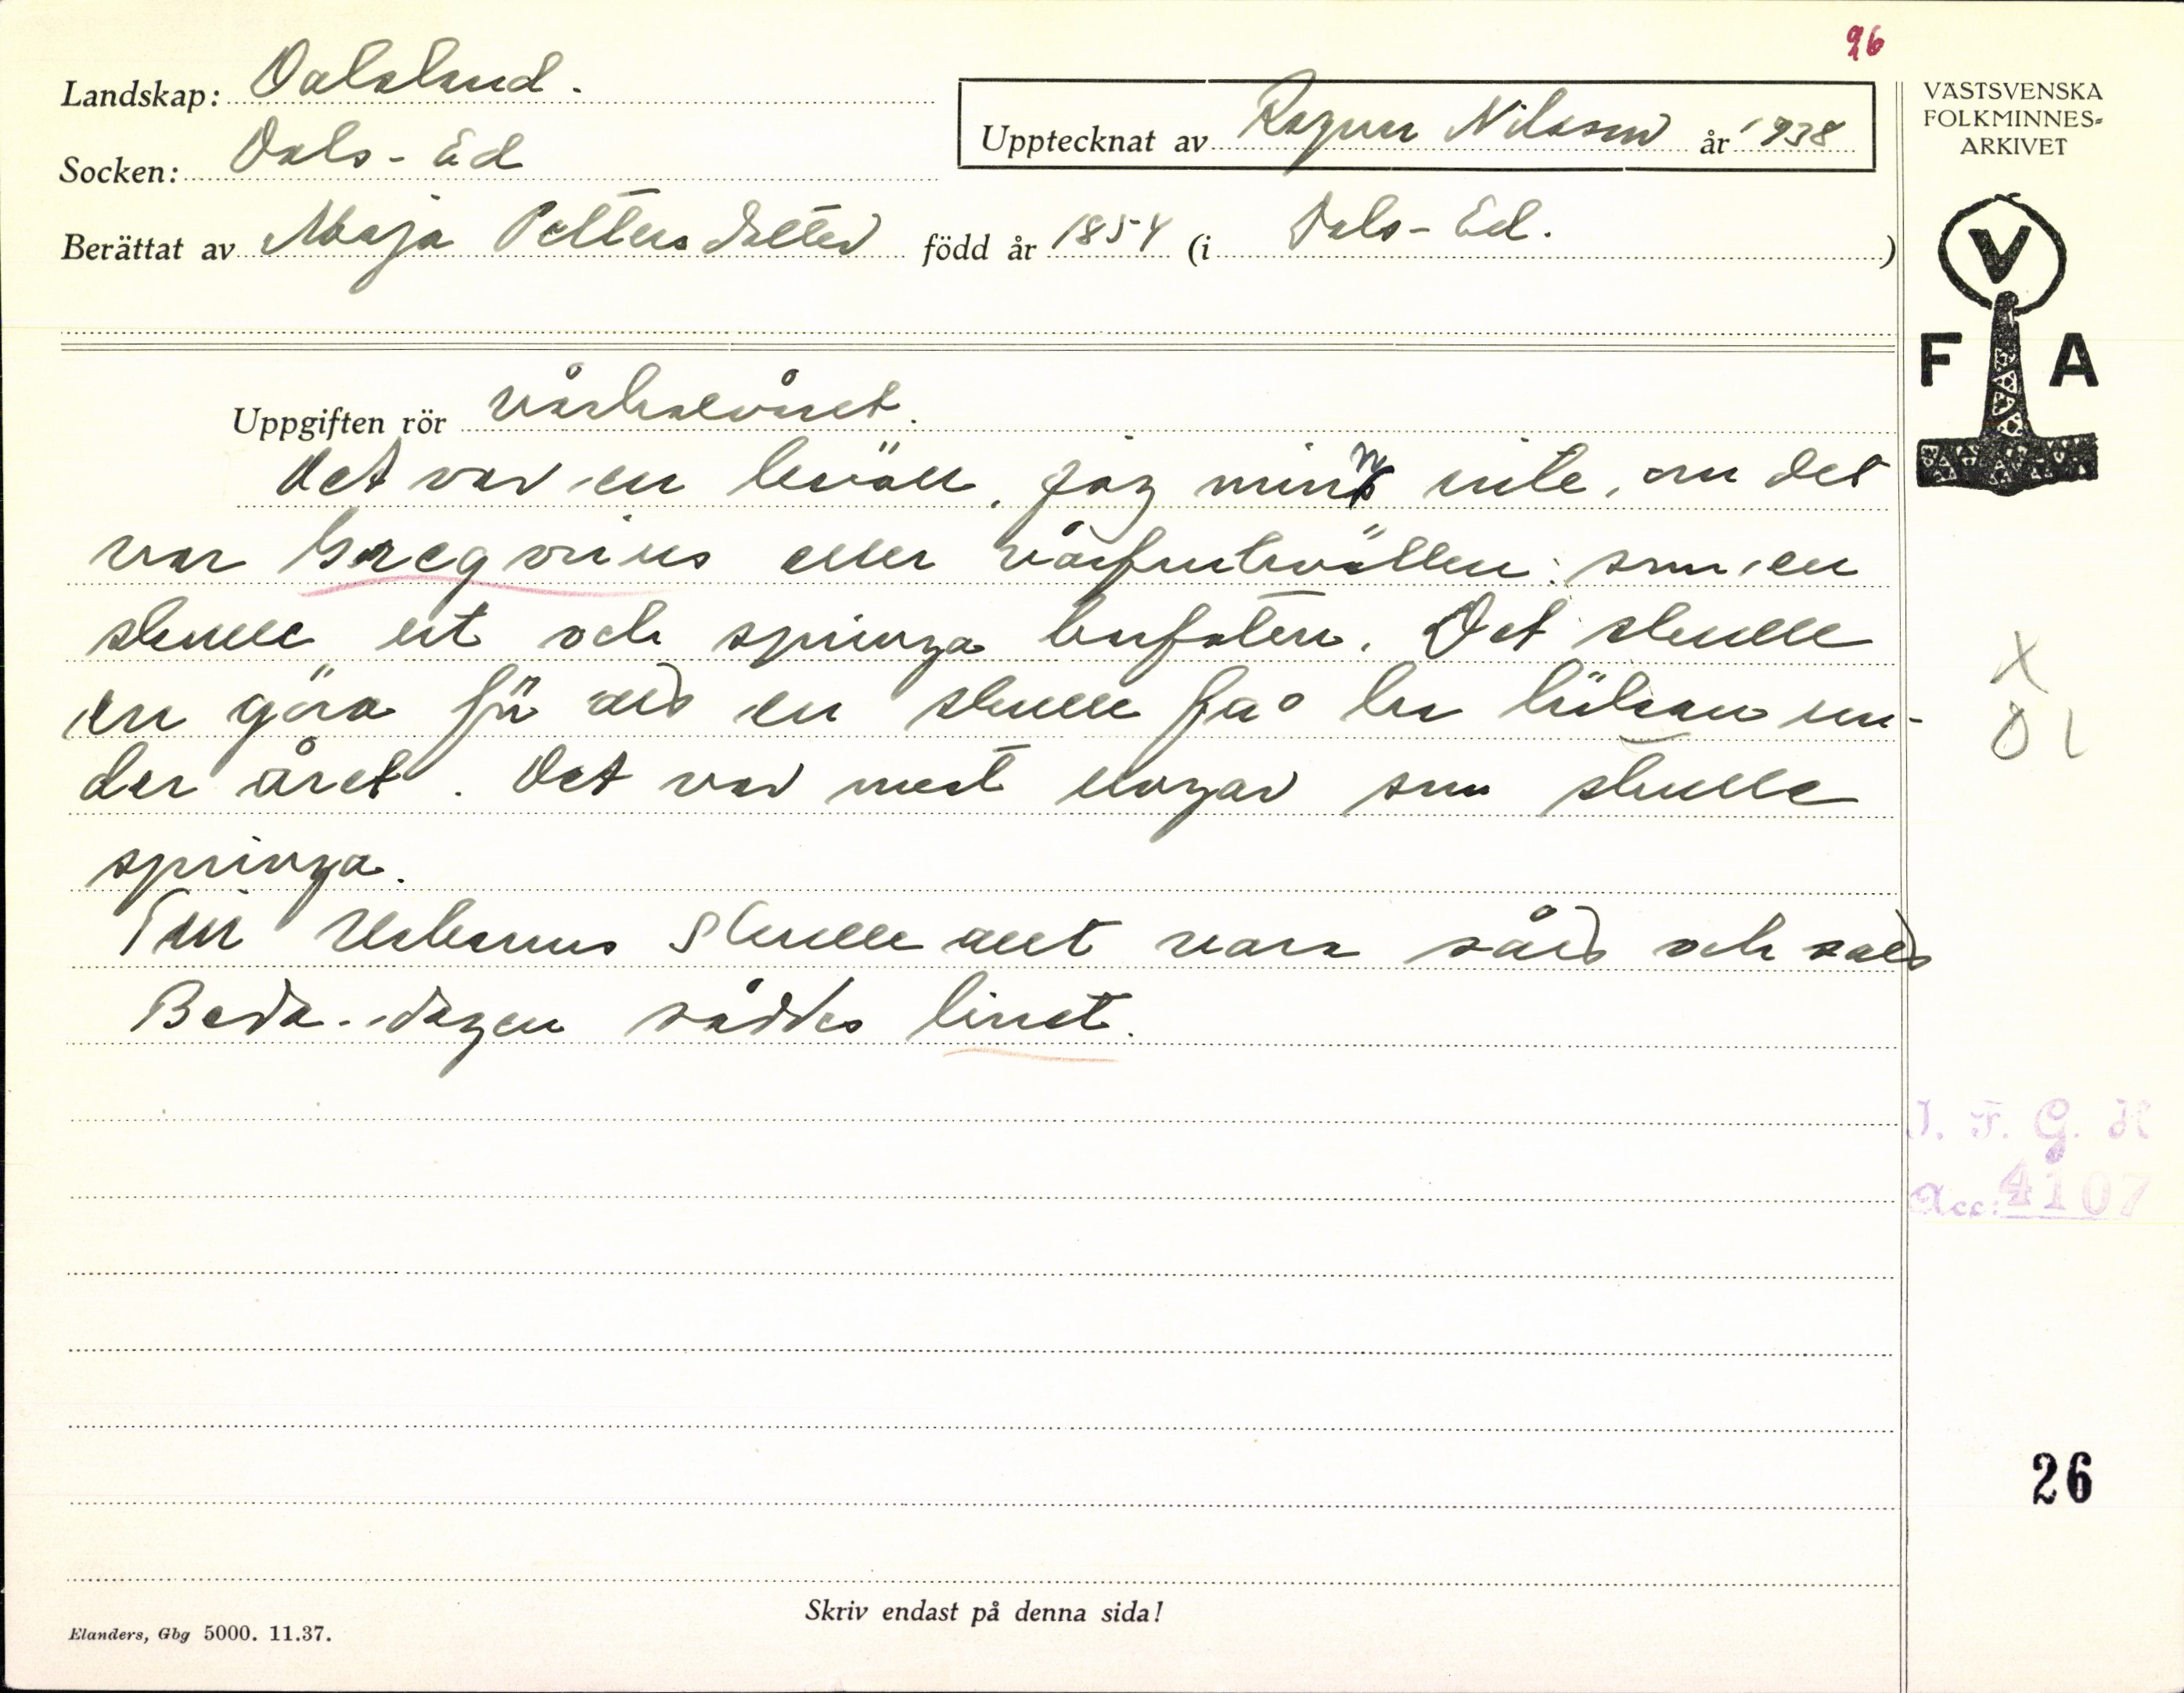 96
Landskap: Dalsland.
Socken: Dals-Ed
Upptecknat av Ragnar Nilsson år 1938
Berättat av Maja Pettersdotter född år 1854 (i Dals-Ed.)
VÄSTSVENSKA
FOLKMINNES-
ARKIVET
V
F A
Uppgiften rör vårhalvåret.
Det var en kväll, jag minns inte, om det
var Gregorius eller vårfrukvällen: som en
skulle ut och springa barfoten. Det skulle
en göra för att en skulle få ha hälsan un-
der året. Det var mest ungar som skulle
springa.
Till Urbanus skulle allt vara sått och satt
Beda-dagen såddes linet.
X
Ö L
I. F. G. H
Acc: 4107
26
Skriv endast på denna sida!
Elanders, Gbg 5000. 11.37.